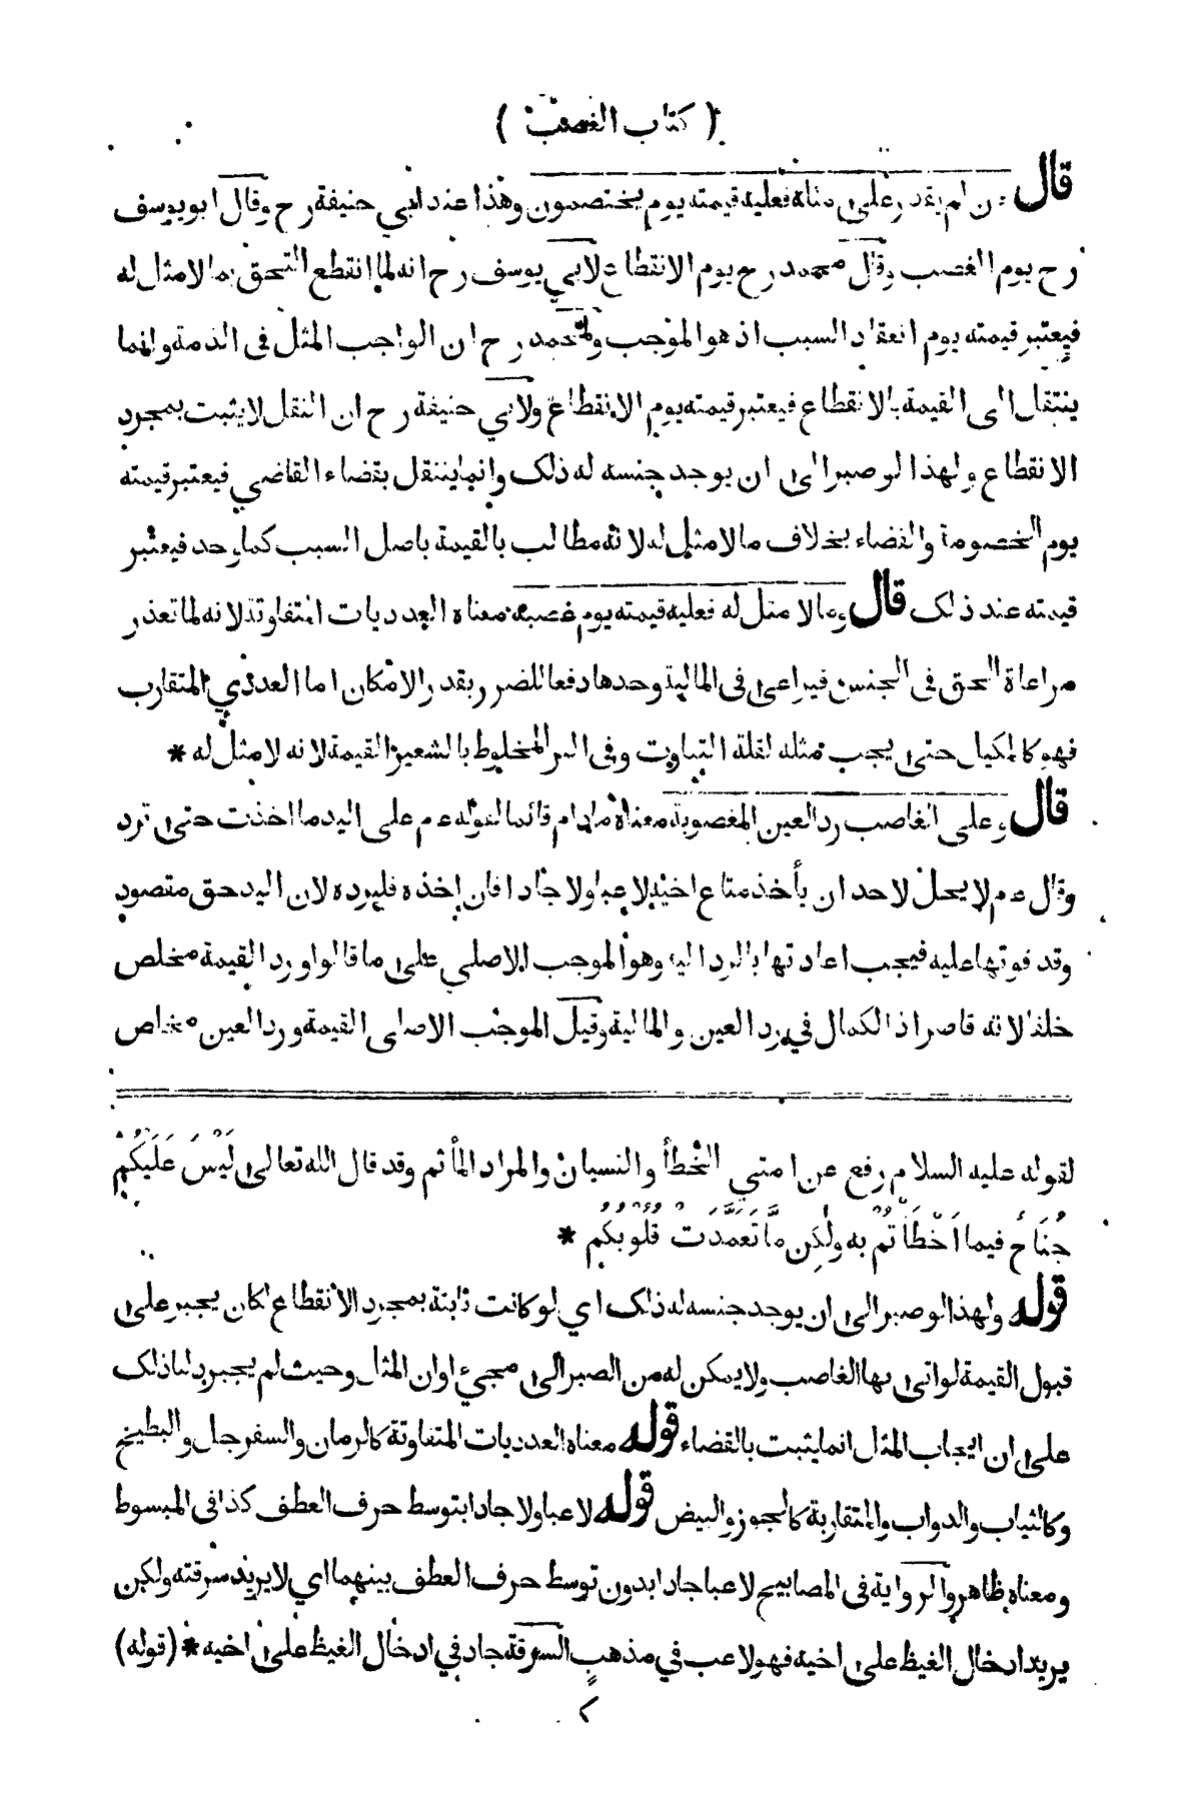 ( كتاب الغصب )
قال فان لم يقدر على مثله فعليه قيمته يوم يختصمون وهذا عند ابي حنيفة رح وقال ابو يوسف
رح يوم الغصب وقال محمد رح يوم الانقطاع لابي يوسف رح انه لما انقطع التحق بما لا مثل له
فيعتبر قيمته يوم انعقاد السبب اذ هو الموجب ولمحمد رح ان الواجب المثل في الذمة وانما
ينتقل الى القيمة بالانقطاع فيعتبر قيمته يوم الانقطاع ولابي حنيفة رح ان النقل لا يثبت بمجرد
الانقطاع ولهذا لو صبر الى ان يوجد جنسه له ذلك وانما ينتقل بقضاء القاضي فيعتبر قيمته
يوم الخصومة والقضاء بخلاف ما لا مثل له لانه مطالب بالقيمة باصل السبب كما وجد فيعتبر
قيمته عند ذلك قال وما لا مثل له فعليه قيمته يوم غصبه معناه العدديات المتفاوتة لانه لما تعذر
مراعاة الحق في الجنس فيراعى في المالية وحدها دفعا للضرر بقدر الامكان اما العددي المتقارب
فهو كالمكيل حتى يجب مثله لقلة التفاوت وفي البر المخلوط بالشعير القيمة لانه لا مثل له *
قال وعلى الغاصب رد العين المغصوبة معناه ما دام قائما لقوله ءم على اليد ما اخذت حتى ترد
وقال ءم لا يحل لاحد ان يأخذ متاع اخيه لاعبا ولا جادا فان اخذه فليرده لان اليد حق مقصود
وقد فوتها عليه فيجب اعادتها بالرد اليه وهو الموجب الاصلي على ما قالوا ورد القيمة مخلص
خلفا لانه قاصر اذ الكمال في رد العين والمالية وقيل الموجب الاصلي القيمة ورد العين مخلص
لقوله عليه السلام رفع عن امتي الخطأ والنسيان والمراد المأثم وقد قال الله تعالى لَيْسَ عَلَيْكُمْ
جُنَاحٌ فيما اَخْطَأْتُمْ به ولٰكِن مَّا تَعَمَّدَتْ قُلُوبُكُمْ *
قوله ولهذا لو صبر الى ان يوجد جنسه له ذلك اي لو كانت ثابتة بمجرد الانقطاع لكان يجبر على
قبول القيمة لو اتى بها الغاصب ولا يمكن له من الصبر الى مجيء اوان المثل وحيث لم يجبر دلنا ذلك
على ان ايجاب المثل انما يثبت بالقضاء قوله معناه العدديات المتفاوتة كالرمان والسفرجل والبطيخ
وكالثياب والدواب والمتقاربة كالجوز والبيض قوله لاعبا ولا جادا بتوسط حرف العطف كذا في المبسوط
ومعناه ظاهر والرواية في المصابيح لاعبا جادا بدون توسط حرف العطف بينهما اي لا يريد سرقته ولكن
يريد ادخال الغيظ على اخيه فهو لاعب في مذهب السرقة جاد في ادخال الغيظ على اخيه * (قوله)